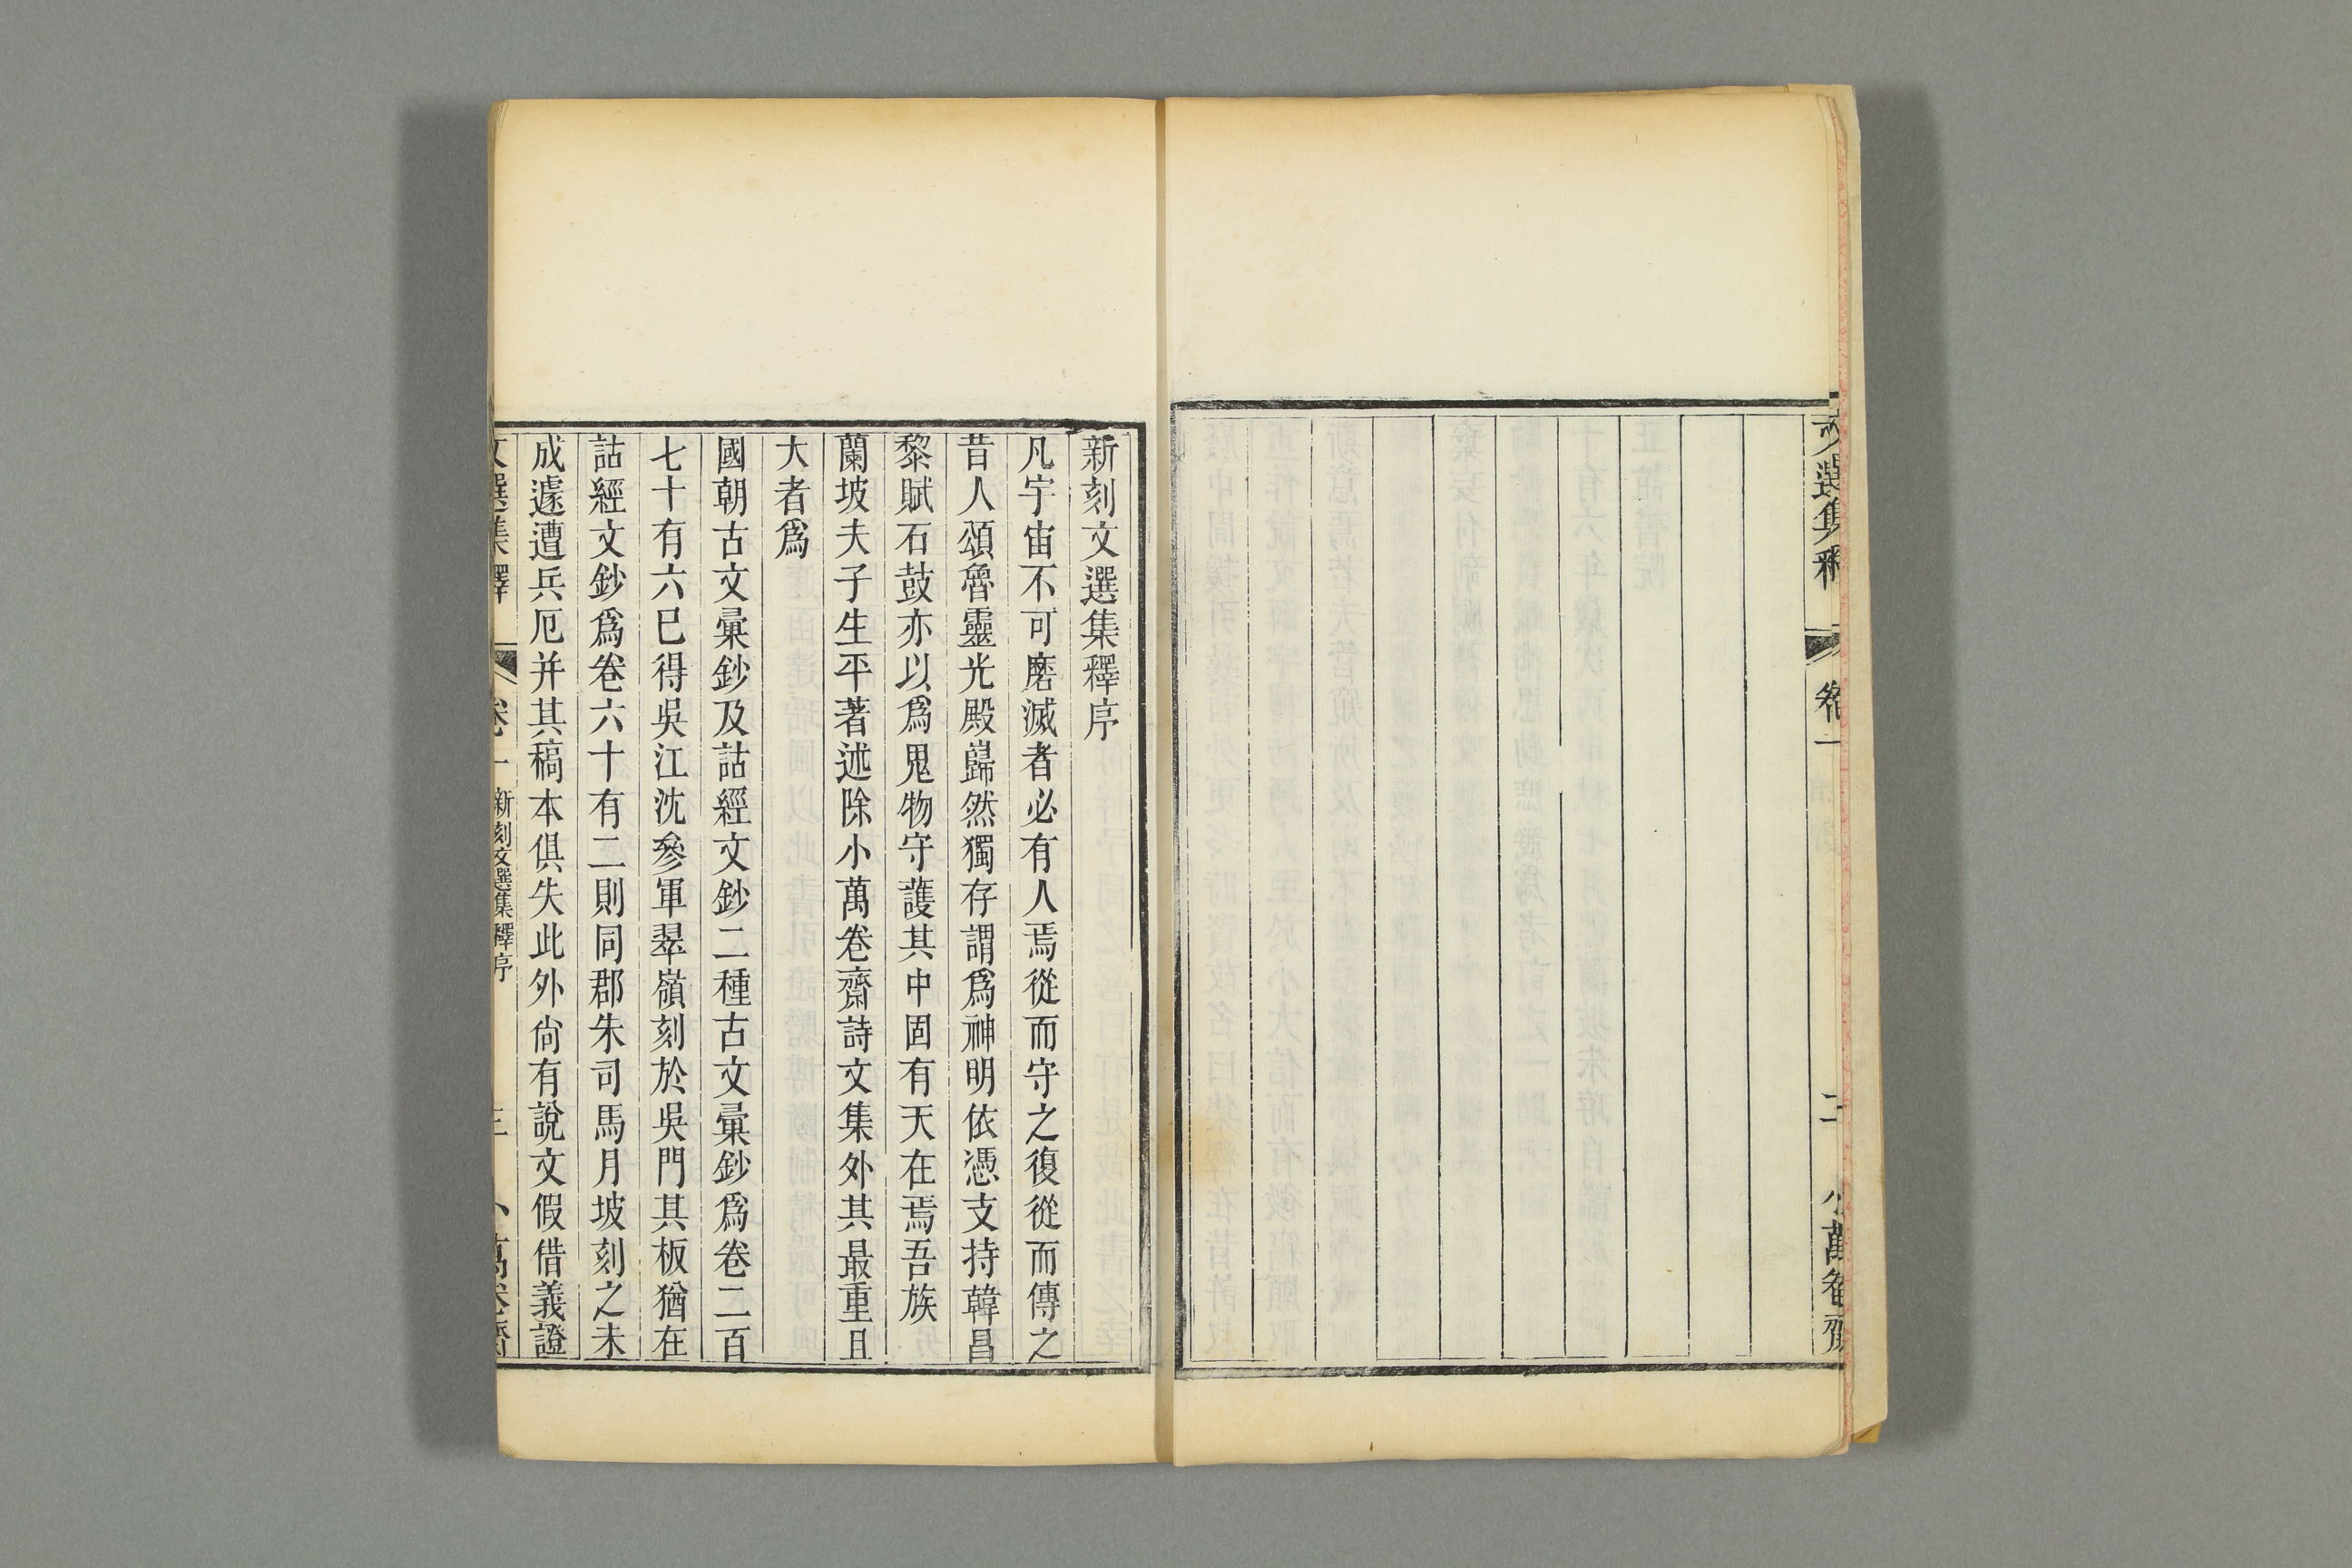 文選集釋 卷一 二 小萬卷齋
新刻文選集釋序
凡宇宙不可磨滅者必有人焉從而守之復從而傳之
昔人頌魯靈光殿巋然獨存謂爲神明依憑支持韓昌
黎賦石鼓亦以爲鬼物守護其中固有天在焉吾族
蘭坡夫子生平著述除小萬卷齋詩文集外其最重且
大者爲
國朝古文彙鈔及詁經文鈔二種古文彙鈔爲卷二百
七十有六已得吳江沈參軍翠嶺刻於吳門其板猶在
詁經文鈔爲卷六十有二則同郡朱司馬月坡刻之未
成遽遭兵厄并其稿本俱失此外尙有說文假借義證
文選集釋 卷一 新刻文選集釋序 三 小萬卷齋